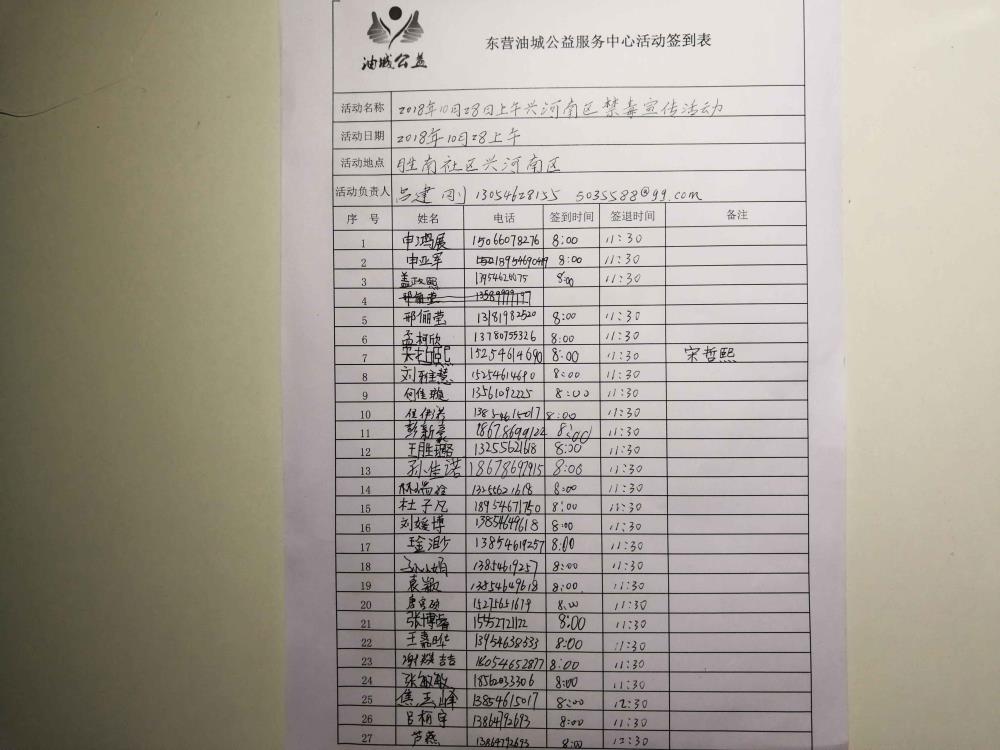 油城公益
东营油城公益服务中心活动签到表
活动名称 2018年10月28日上午兴河南区禁毒宣传活动
活动日期 2018年10月28上午
活动地点 胜南社区兴河南区
活动负责人 吕建刚 13054628155 5035588@qq.com
序 号 姓名 电话 签到时间 签退时间 备注
1 申鸿展 15066078276 8:00 11:30
2 申亚军 8:00 11:30
3 孟政熙 8:00 11:30
4 邢俪莹
5 邢俪莹 13181982520 8:00 11:30
6 孟柯欣 13780755326 8:00 11:30
7 15254614690 8:00 11:30 宋哲熙
8 刘雅慧 15254614690 8:00 11:30
9 何佳璇 13561092225 8:00 11:30
10 13854615017 8:00 11:30
11 彭新豪 18678699122 8:00 11:30
12 王胜璐 13255621618 8:00 11:30
13 孙佳诺 18678697915 8:00 11:30
14 13255621618 8:00 11:30
15 杜子凡 18954671750 8:00 11:30
16 刘媛博 13854649618 8:00 11:30
17 13854619257 8:00 11:30
18 13854619257 8:00 11:30
19 袁颖 13854649618 8:00 11:30
20 15275651679 8:00 11:30
21 张博睿 15552721122 8:00 11:30
22 王嘉晔 13954638533 8:00 11:30
23 18054652877 8:00 11:30
24 张敏敏 18562033306 8:00 11:30
25 焦玉峰 13854615017 8:00 12:30
26 吕柄宇 13864792693 8:00 11:30
27 芦燕 13864792693 8:00 12:30